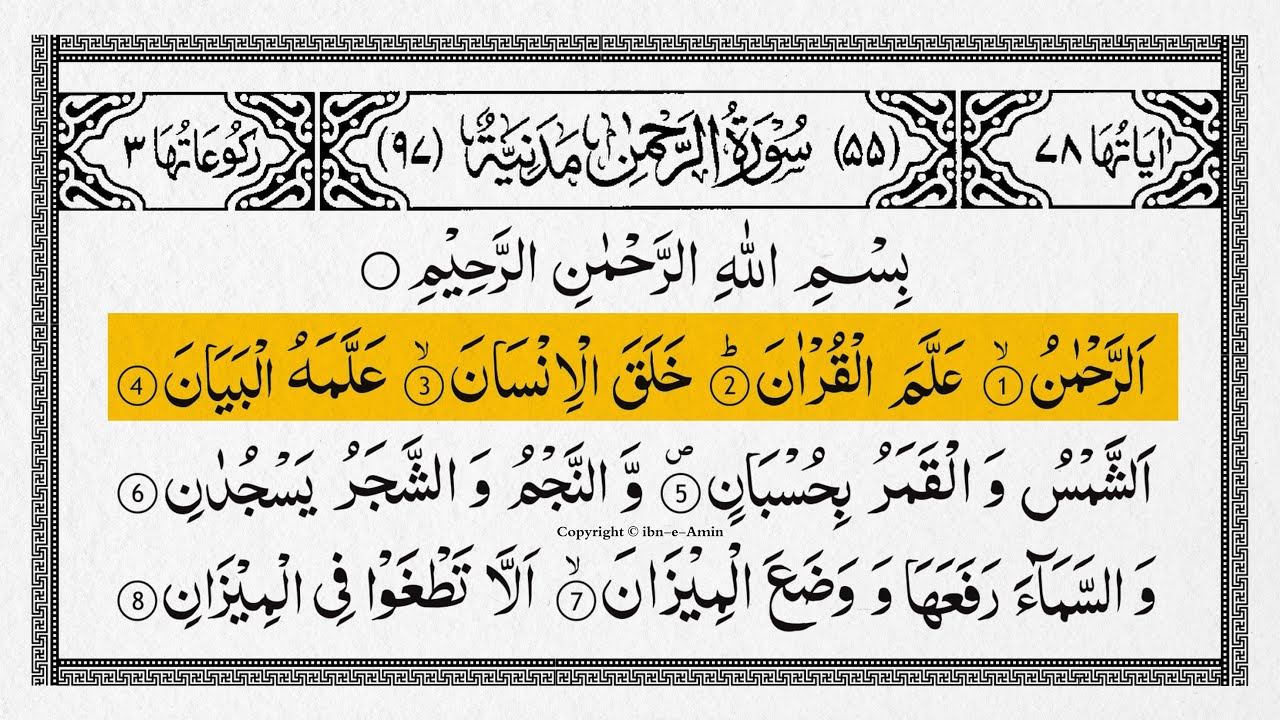 اٰيَاتُهَا ٧٨ (٥٥) سُوْرَةُ الرَّحْمٰنِ مَدَنِيَّةٌ (٩٧) رُكُوْعَاتُهَا ٣
بِسْمِ اللّٰهِ الرَّحْمٰنِ الرَّحِيْمِ ○
اَلرَّحْمٰنُ ۙ① عَلَّمَ الْقُرْاٰنَ ؕ② خَلَقَ الْاِنْسَانَ ۙ③ عَلَّمَهُ الْبَيَانَ ④
اَلشَّمْسُ وَ الْقَمَرُ بِحُسْبَانٍ ۪⑤ وَّ النَّجْمُ وَ الشَّجَرُ يَسْجُدٰنِ ⑥
Copyright © ibn-e-Amin
وَ السَّمَآءَ رَفَعَهَا وَ وَضَعَ الْمِيْزَانَ ۙ⑦ اَلَّا تَطْغَوْا فِى الْمِيْزَانِ ⑧